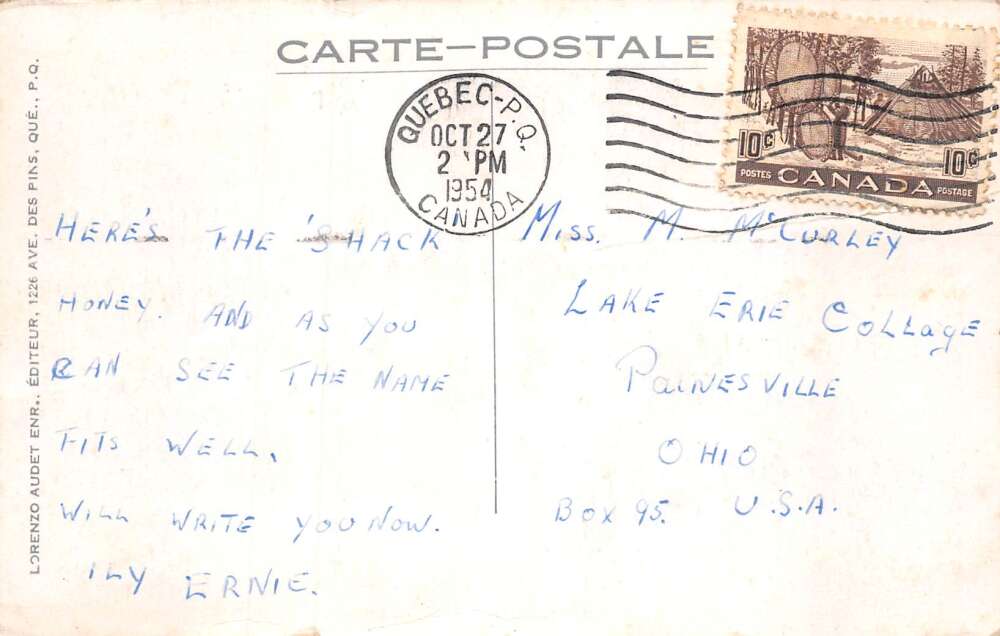 CARTE-POSTALE
QUEBEC-P.Q.
OCT 27
2 PM
1954
CANADA
10¢ 10¢
POSTES CANADA POSTAGE
HERE'S THE 'SHACK
HONEY. AND AS YOU
CAN SEE THE NAME
FITS WELL.
WILL WRITE YOU NOW.
ILY ERNIE.
MISS. M. McCURLEY
LAKE ERIE COLLAGE
PAINESVILLE
OHIO
BOX 95. U.S.A.
LORENZO AUDET ENR., ÉDITEUR, 1226 AVE. DES PINS, QUÉ., P.Q.